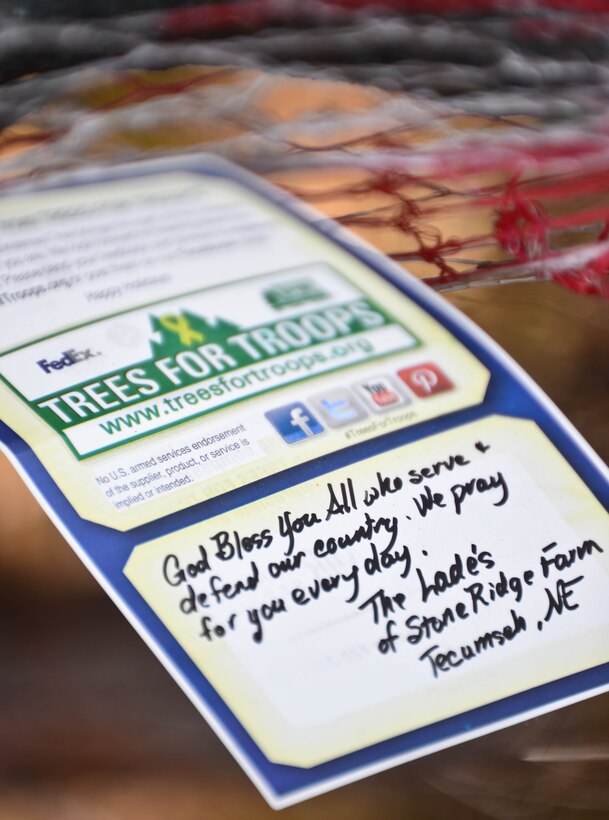 Troops.org
Happy holidays!
FedEx.
TREES FOR TROOPS
www.treesfortroops.org
You
#TreesForTroops
No U.S. armed services endorsement
of the supplier, product, or service is
implied or intended.
God Bless You All who serve &
defend our country. We pray
for you every day.
The Lade's
of StoneRidge Farm
Tecumseh, NE